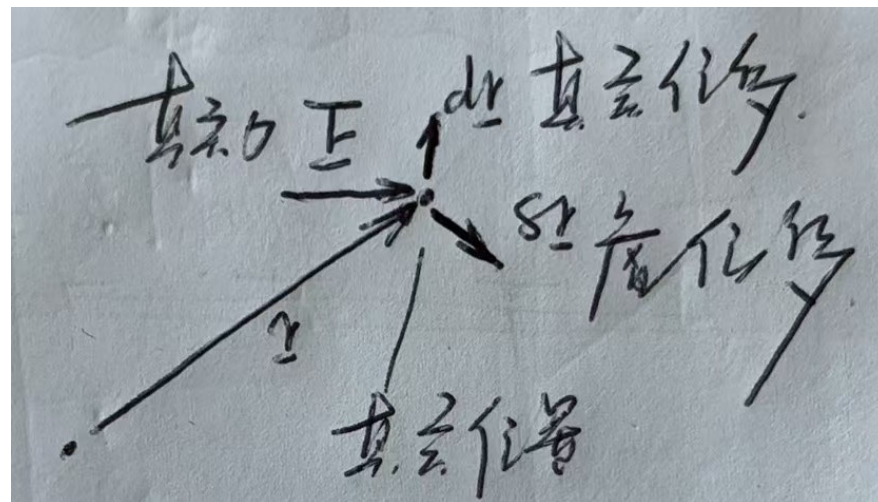 真实力 F
dr 真实位移.
δr 虚位移
r
真实位置